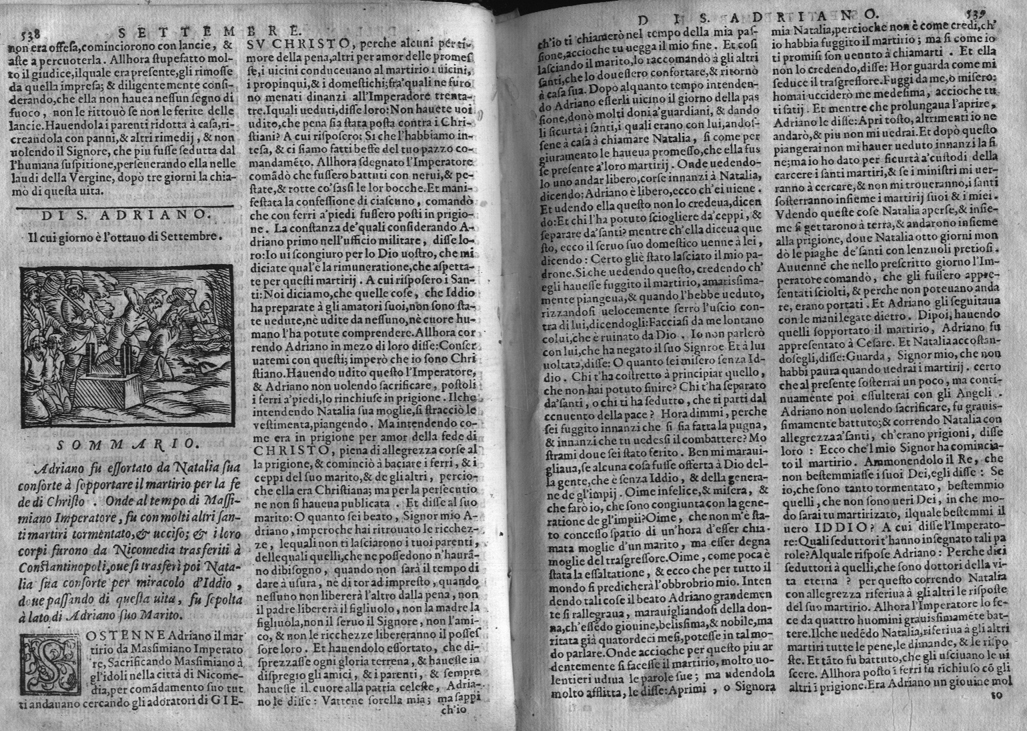 538 SETTEMBRE.
non era offesa, cominciorono con lancie, &
aste a percuoterla. Allhora stupefatto mol-
to il giudice, ilquale era presente, gli rimosse
da quella impresa; & diligentemente consi-
derando, che ella non haueа nessun segno di
fuoco, non le rittouò se non le ferite delle
lancie. Hauendola i parenti ridotta à casa, ri-
creandola con panni, & altri rimedij, & non
uolendo il Signore, che piu fusse sedutta dal
l'humana suspitione, perseuerando ella nelle
laudi della Vergine, dopò tre giorni la chia-
mò di questa uita.
DI S. ADRIANO.
Il cui giorno è l'ottauo di Settembre.
SOMMARIO.
Adriano fu essortato da Natalia sua
consorte à sopportare il martirio per la fe
de di Christo. Onde al tempo di Massi-
miano Imperatore, fu con molti altri san-
ti martiri tormentato, & ucciso; & i loro
corpi furono da Nicomedia trasferiti à
Constantinopoli, oue si trasferì poi Nata-
lia sua consorte per miracolo d'Iddio,
doue passando di questa uita, fu sepolta
à lato di Adriano suo Marito.
SOSTENNE Adriano il mar
tirio da Massimiano Imperato
re, Sacrificando Massimiano à
gl'idoli nella città di Nicome-
dia, per comãdamento suo tut
ti andauano cercando gli adoratori di GIE-
SV CHRISTO, perche alcuni per ti-
more della pena, altri per amor delle promes
se, i uicini conduceuano al martirio i uicini,
i propinqui, & i domestichi; fra'quali ne furo
no menati dinanzi all'Imperadore trenta-
tre. I quali ueduti, disse loro: Non hauete uoi
udito, che pena sia stata posta contra i Chri-
stiani? A cui risposero: Si che l'habbiamo in-
tesa, & ci siamo fatti beffe del tuo pazzo co-
mandamẽto. Allhora sdegnato l'Imperatore
comãdò che fussero battuti con nerui, & pe-
state, & rotte co'sassi le lor bocche. Et mani-
festata la confessione di ciascuno, comandò
che con ferri a'piedi fussero posti in prigio-
ne. La constanza de'quali considerando A-
driano primo nell'ufficio militare, disse lo-
ro: Io ui scongiuro per lo Dio uostro, che mi
diciate qual'è la rimuneratione, che aspetta-
te per questi martirij. A cui risposero i San-
ti: Noi diciamo, che quelle cose, che Iddio
ha preparate à gli amatori suoi, non sono sta-
te uedute, nè udite da nessuno, nè cuore hu-
mano l'ha potute comprendere. Allhora cor
rendo Adriano in mezo di loro disse: Conser
uatemi con questi; imperò che io sono Chri
stiano. Hauendo udito questo l'Imperatore,
& Adriano non uolendo sacrificare, postoli
i ferri a'piedi, lo rinchiuse in prigione. Ilche
intendendo Natalia sua moglie, si stracciò le
vestimenta, piangendo. Ma intendendo co-
me era in prigione per amor della fede di
CHRISTO, piena di allegrezza corse al
la prigione, & cominciò à baciare i ferri, & i
ceppi del suo marito, & de gli altri, percio-
che ella era Christiana; ma per la persecutio
ne non si haueua publicata. Et disse al suo
marito: O quanto sei beato, Signor mio A-
driano, imperoche hai ritrouato le ricchez-
ze, lequali non ti lasciarono i tuoi parenti,
delle quali quelli, che ne possedono n'haurã-
no dibisogno, quando non sarà il tempo di
dare à usura, ne di tor ad impresto, quando
nessuno non libererà l'altro dalla pena, non
il padre libererà il figliuolo, non la madre la
figliuola, non il seruo il Signore, non l'ami-
co, & non le ricchezze libereranno il posses
sore loro. Et hauendolo essortato, che di-
sprezzasse ogni gloria terrena, & hauesse in
dispregio gli amici, & i parenti, & sempre
hauesse il cuore alla patria celeste, Adria-
no le disse: Vattene sorella mia; ma sappi
ch'io
DI S. ADRIANO. 539
ch'io ti chiamerò nel tempo della mia pas-
sione, accioche tu uegga il mio fine. Et cosi
lasciando il marito, lo raccomandò à gli altri
santi, che lo douessero confortare, & ritornò
à casa sua. Dopo alquanto tempo intenden-
do Adriano esserli uicino il giorno della pas
sione, donò molti doni a'guardiani, & dando
li sicurtà i santi, i quali erano con lui, andos-
sene à casa à chiamare Natalia, si come per
giuramento le haueua promesso, che ella fus
se presente a'loro martirij. Onde uedendo-
lo uno andar libero, corse innanzi à Natalia,
dicendo: Adriano è libero, ecco ch'ei uiene.
Et udendo ella questo non lo credeua, dicen
do: Et chi l'ha potuto sciogliere da'ceppi, &
separare da'santi? mentre ch'ella diceua que
sto, ecco il seruo suo domestico uenne à lei,
dicendo: Certo gliè stato lasciato il mio pa-
drone. Si che uedendo questo, credendo ch'
egli hauesse fuggito il martirio, amarissima-
mente piangeua, & quando l'hebbe ueduto,
rizzandosi uelocemente serrò l'uscio con-
tra di lui, dicendogli: Facciasi da me lontano
colui, che è ruinato da Dio. Io non parlerò
con lui, che ha negato il suo Signroe Et à lui
uoltata, disse: O quanto sei misero senza Id-
dio. Chi t'ha costretto à principiar quello,
che non hai potuto finire? Chi t'ha separato
da'santi, o chi ti ha sedutto, che ti parti dal
conuento della pace? Hora dimmi, perche
sei fuggito innanzi che si sia fatta la pugna,
& innanzi che tu uedessi il combattere? Mo
strami doue sei stato ferito. Ben mi maraui-
gliaua, se alcuna cosa fusse offerta à Dio del-
la gente, che è senza Iddio, & della genera-
ne de gl'impij. Oime infelice, & misera, &
che farò io, che sono congiunta con la gene-
ratione de gl'impij? Oime, che non m'è sta-
to concesso spatio di un'hora d'esser chia-
mata moglie d'un marito, ma esser degna
moglie del trasgressore. Oime, come poca è
stata la essaltatione, & ecco che per tutto il
mondo si predicherà l'obbrobrio mio. Inten
dendo tali cose il beato Adriano grandemen
te si rallegraua, marauigliandosi della don-
na, ch'essẽdo giouine, belissima, & nobile, ma
ritata già quatordeci mesi, potesse in tal mo-
do parlare. Onde accioche per questo piu ar
dentemente si facesse il martirio, molto uo-
lentieri udiua le parole sue; ma uedendola
molto afflitta, le disse: Aprimi, o Signora
mia Natalia, percioche non è come credi, ch'
io habbia fuggito il martirio; ma si come io
ti promisi son uennto à chiamarti. Et ella
non lo credendo, disse: Hor guarda come mi
seduce il trasgressore. Fuggi da me, ò misero:
homai ucciderò me medesima, accioche tu
ti satij. Et mentre che prolungaua l'aprire,
Adriano le disse: Apri tosto, altrimenti io ne
andarò, & piu non mi uedrai. Et dopò questo
piangerai non mi hauer ueduto innanzi la fi
ne; ma io ho dato per sicurtà a'custodi della
carcere i santi martiri, & se i ministri mi uer-
ranno à cercare, & non mi troueranno, i santi
sosterranno insieme i martirij suoi & i miei.
Vdendo queste cose Natalia aperse, & insie-
me si gettarono à terra, & andarono insieme
alla prigione, doue Natalia otto giorni non
dò le piaghe de'santi con lenzuoli pretiosi.
Auuenne che nello prescritto giorno l'Im-
peratore comandò, che gli fussero appre-
sentati sciolti, & perche non poteuano anda
re, erano portati. Et Adriano gli seguitaua
con le mani legate dietro. Dipoi, hauendo
quelli sopportato il martirio, Adriano fu
appresentato à Cesare. Et Natalia accostan-
dosegli, disse: Guarda, Signor mio, che non
habbi paura quando uedrai i martirij. certo
che al presente sosterrai un poco, ma conti-
nuamente poi essulterai con gli Angeli.
Adriano non uolendo sacrificare, fu grauis-
simamente battuto; & correndo Natalia con
allegrezza a'santi, ch'erano prigioni, disse
loro: Ecco che'l mio Signor ha comincia-
to il martirio. Ammonendolo il Re, che
non bestemmiasse i suoi Dei, egli disse: Se
io, che sono tanto tormentato, bestemmio
quelli, che non sono ueri Dei, in che mo-
do sarai tu martirizato, ilquale bestemmi il
uero IDDIO? A cui disse l'Imperato-
re: Quali seduttori t'hanno insegnato tali pa
role? Alquale rispose Adriano: Perche dici
seduttori à quelli, che sono dottori della vi-
ta eterna? per questo correndo Natalia
con allegrezza riferiua à gli altri le risposte
del suo martirio. Allhora l'Imperatore lo fe-
ce da quattro huomini grauissimamẽte bat-
tere. Ilche uedẽdo Natalia, riferiua à gli altri
martiri tutte le pene, le dimande, & le rispo
ste. Et tãto fu battuto, che gli usciuano le ui
scere. Allhora posto i ferri fu richiuso cõ gli
altri ĩ prigione. Era Adriano un giouine mol
to